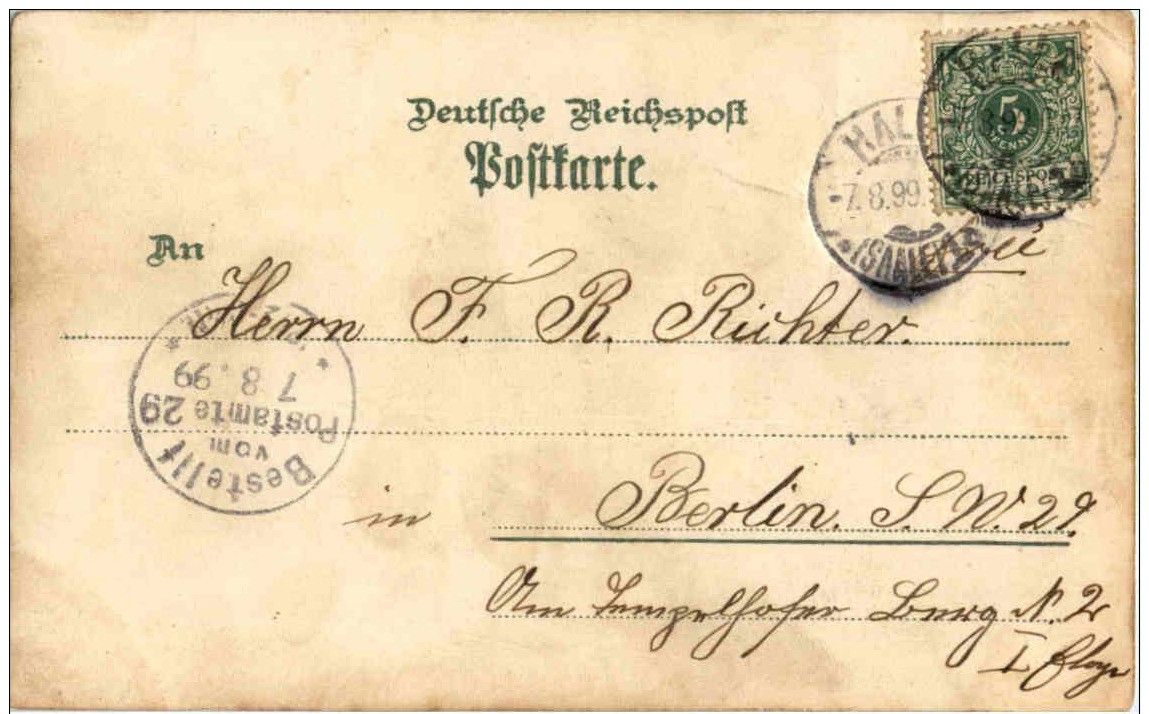 Deutsche Reichspost
Postkarte.
5
PFENNIG
REICHSPOST
HAL
7.8.99.
(SAALE)
An
Herrn F. R. Richter.
Bestellt
vom
Postamte 29
7 8.99
in Berlin. S. W. 29.
Am Tempelhofer Berg N. 2
I Etage